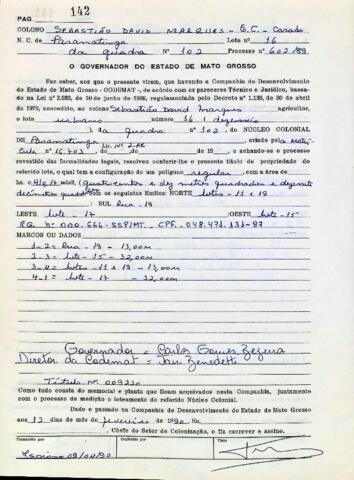 PAG 142
COLONO Sebastião David Marques - E.C. - Casado
N. C. de Paranatinga Lote nº 16
da quadra Nº 102 Processo nº 602/89
O GOVERNADOR DO ESTADO DE MATO GROSSO
Faz saber, aos que o presente virem, que havendo a Companhia de Desenvolvimento
do Estado de Mato Grosso - CODEMAT -, de acordo com os pareceres Técnico e Jurídico, baseados
na Lei nº
de 1970, concedido ao colono Sebastião David Marques agricultor,
o lote urbano 16 ( dezesseis
). da quadra nº 102, do NÚCLEO COLONIAL
DE Paranatinga criado pela
de de 19 , e achando-se o processo
revestido das formalidades legais, resolveu conferir-lhe o presente título de propriedade do
referido lote, o qual tem a configuração de um polígono regular, com a área de
ha. (Quatrocentos e dez metros quadrados e dezoito
decímetros com os seguintes limites: NORTE lotes - 11 e 19
: SUL Rua - 19
LESTE lote - 17 :OESTE lote - 15
R.G. nº 000.666-SSP/MT. CPF. 048.471.131-87
MARCOS OU DADOS
1-2 = Rua - 19 - 13,00m
2-3 = lote - 15 - 32,00m
3-4 = lotes - 11 e 19 - 13,00m
4-1 = lote - 17 - 32,00m
Governador = Carlos Gomes Bezerra
Diretor da Codemat = Jair Benedetti
Título nº 009220
Como tudo consta do memorial e planta que ficam arquivados nesta Companhia, juntamente
com o processo de medição e loteamento do referido Núcleo Colonial.
Dado e passado na Companhia de Desenvolvimento do Estado de Mato Grosso
aos 12 dias do mês de fevereiro de 1990. Eu,
, Chefe do Setor de Colonização, o fiz escrever e assino.
Transcrito por Conferido por Visto
09/04/90